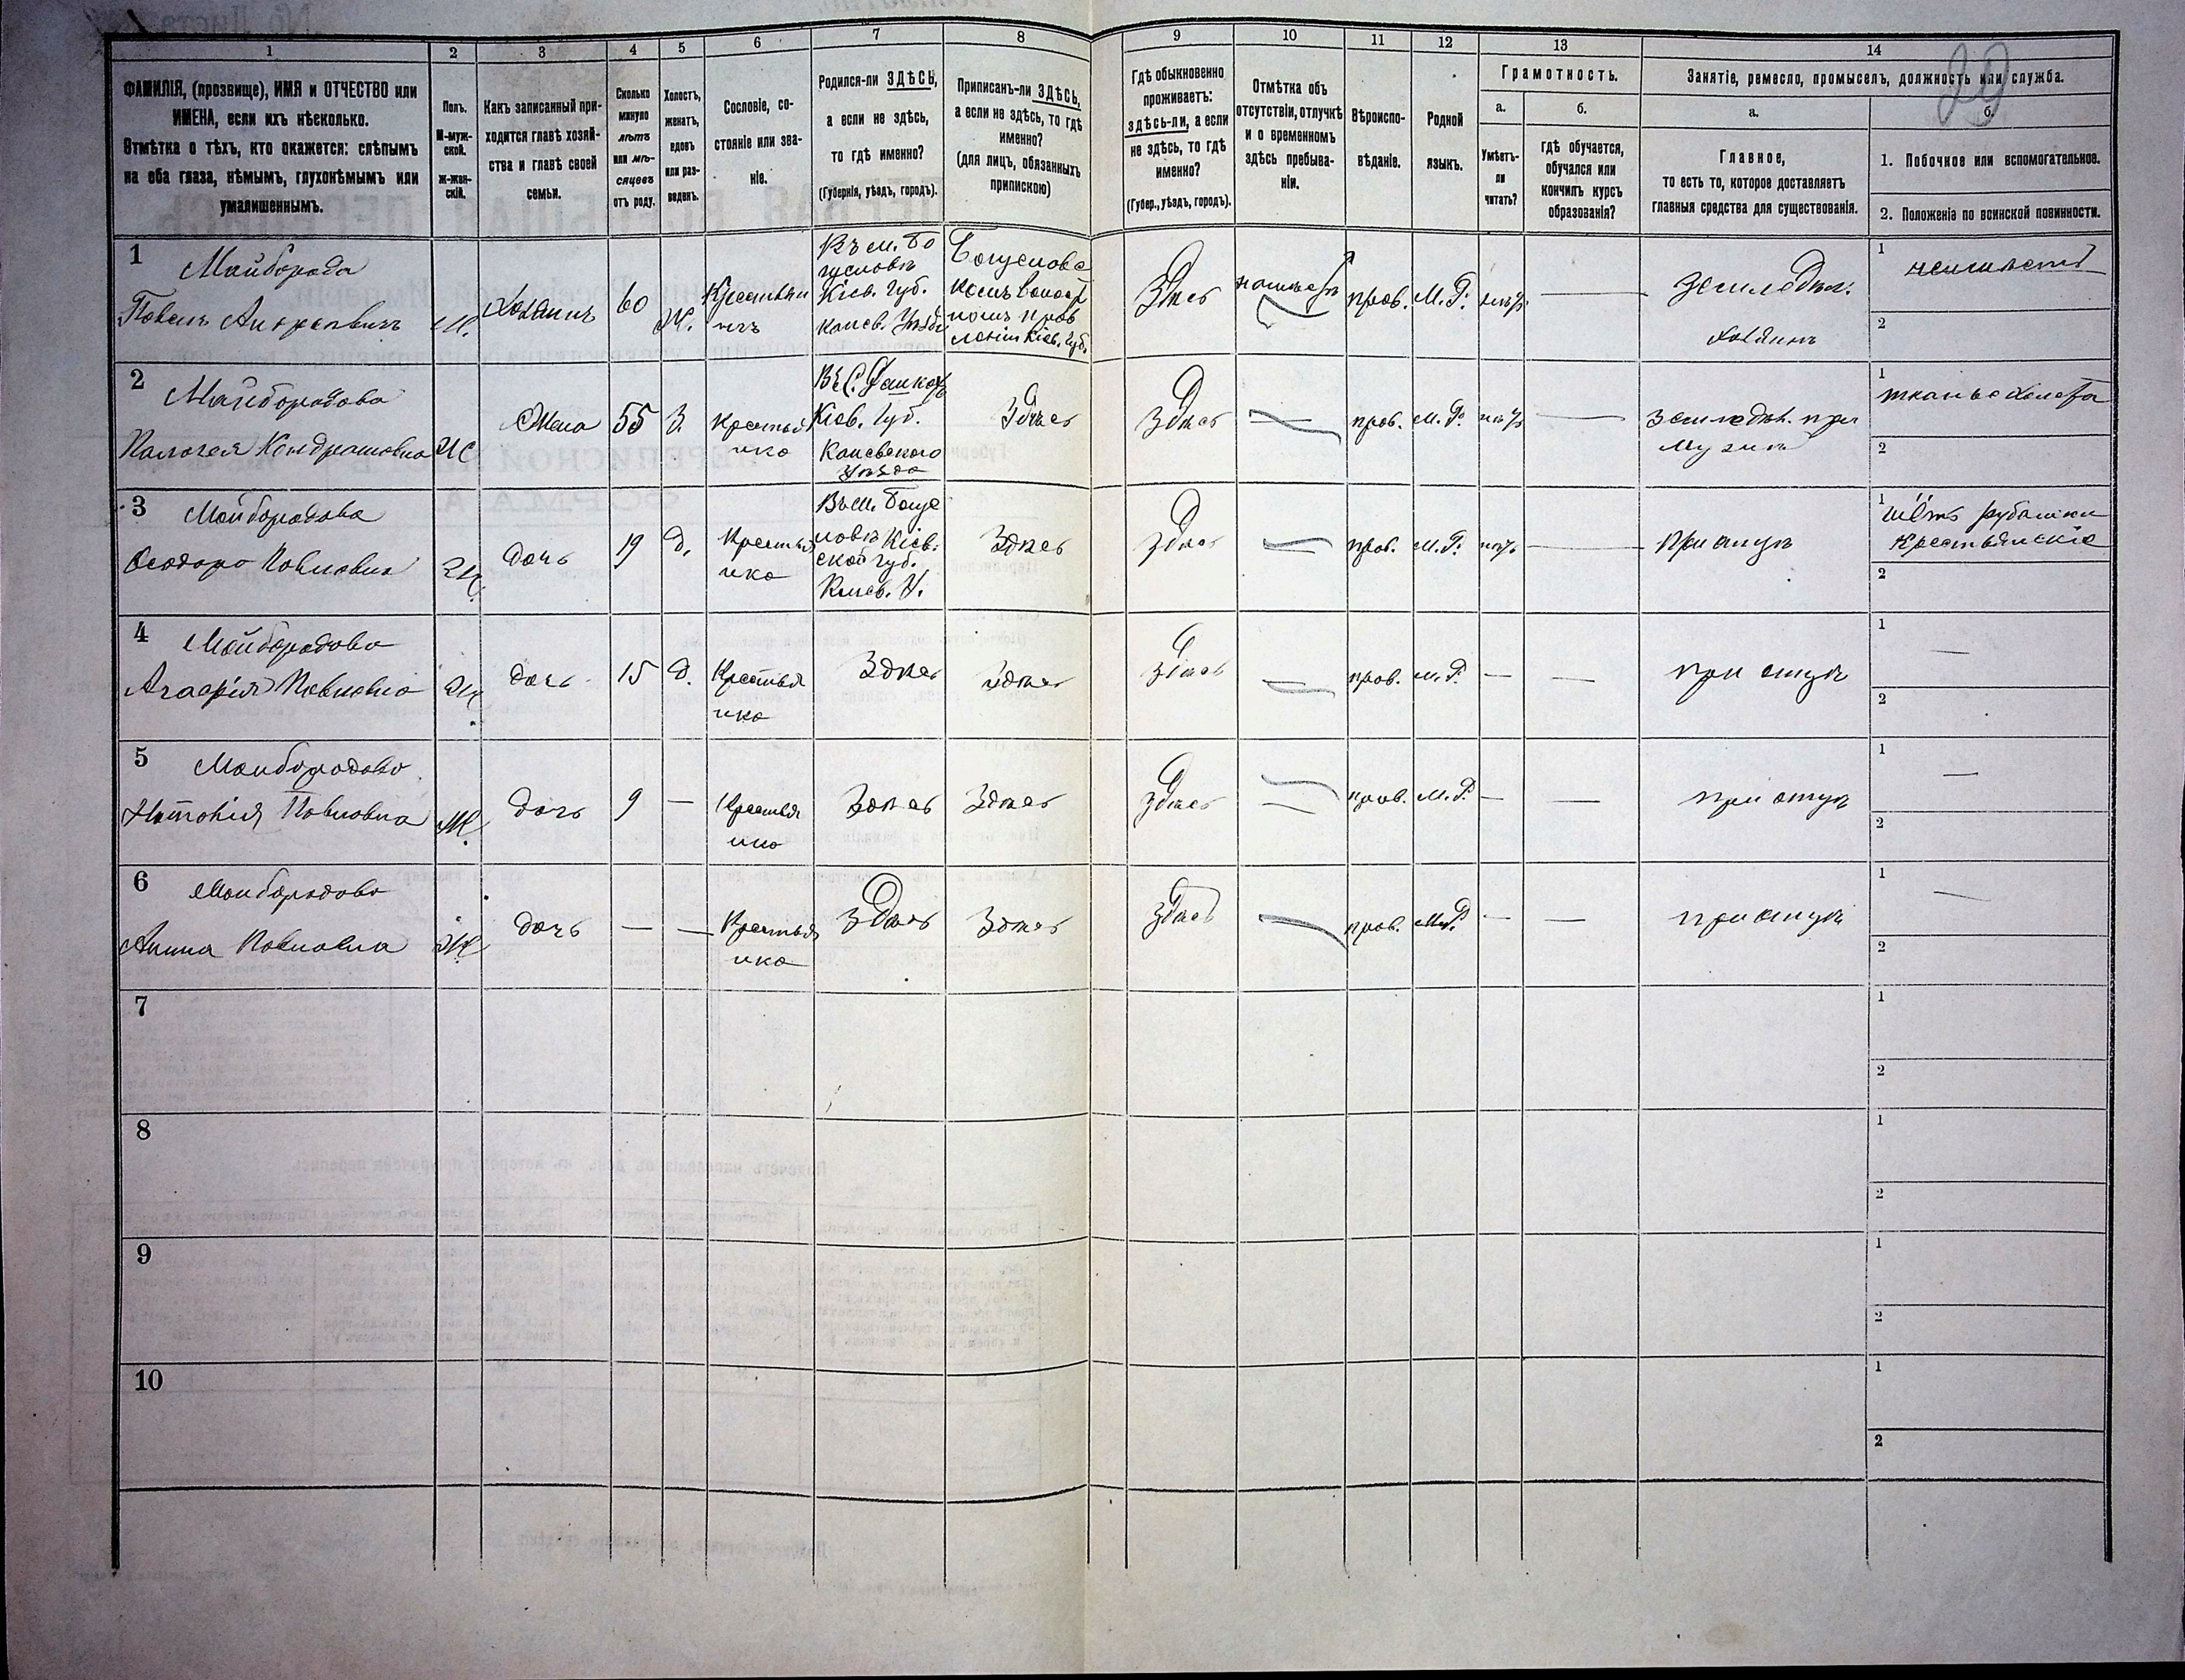 1
2
3
4
5
6
7
8
9
10
11
12
13
14
ФАМИЛІЯ, (прозвище), ИМЯ и ОТЧЕСТВО или
ИМЕНА, если ихъ нѣсколько.
Отмѣтка о тѣхъ, кто окажется: слѣпымъ
на оба глаза, нѣмымъ, глухонѣмымъ или
умалишеннымъ.
Полъ.
М-муж-
ской.
Ж-жен-
скій.
Какъ записанный при-
ходится главѣ хозяй-
ства и главѣ своей
семьи.
Сколько
минуло
лѣтъ
или мѣ-
сяцевъ
отъ роду.
Холостъ,
женатъ,
вдовъ
или раз-
веденъ.
Сословіе, со-
стояніе или зва-
ніе.
Родился-ли ЗДѢСЬ,
а если не здѣсь,
то гдѣ именно?
(Губернія, уѣздъ, городъ).
Приписанъ-ли ЗДѢСЬ,
а если не здѣсь, то гдѣ
именно?
(для лицъ, обязанныхъ
припискою)
Гдѣ обыкновенно
проживаетъ:
здѣсь-ли, а если
не здѣсь, то гдѣ
именно?
(Губер., уѣздъ, городъ).
Отмѣтка объ
отсутствіи, отлучкѣ
и о временномъ
здѣсь пребыва-
ніи.
Вѣроиспо-
вѣданіе.
Родной
языкъ.
Грамотность.
а.
Умѣетъ-
ли
читать?
б.
гдѣ обучается,
обучался или
кончилъ курсъ
образованія?
Занятіе, ремесло, промыселъ, должность или служба.
29
а.
Главное,
то есть то, которое доставляетъ
главныя средства для существованія.
б.
1. Побочное или вспомогательное.
2. Положеніе по воинской повинности.
1
Майборода
Павелъ Андреевичъ
М.
Хозяинъ
60
Ж.
Крестьяни
нъ
Въ м. Бо
гуславѣ
Кіев. Губ.
Канев. Уѣзда
Здѣсь
прав.
М. Р.
Земледѣл.
хозяинъ
1
2
2
Майбородова
Кондратовна
Ж
Жена
55
З.
Крестья
нка
Кіев. Губ.
Каневскаго
Уѣзда
Здѣсь
Здѣсь
—
прав.
М. Р.
—
земледѣл. при
мужѣ
1
2
3
Майбородова
Ѳеодора Павловна
Ж.
Дочь
19
Д.
Крестья
нка
Въ м. Богус
лавѣ Кіев-
ской губ.
Канев. У.
Здѣсь
Здѣсь
—
прав.
М. Р.
—
При отцѣ
1 Шётъ рубашки
крестьянскіе
2
4
Майбородова
Агафія Павловна
Ж
дочь
15
Д.
Крестья
нка
Здѣсь
Здѣсь
Здѣсь
—
прав.
М. Р.
—
—
при отцѣ
1
—
2
5
Майбородова
Павловна
Ж.
Дочь
9
—
Крестья
нка
Здѣсь
Здѣсь
Здѣсь
—
прав.
М. Р.
—
—
при отцѣ
1
—
2
6
Майбородова
Анна Павловна
Ж
дочь
—
—
Крестья
нка
Здѣсь
Здѣсь
Здѣсь
—
прав.
М. Р.
—
—
при отцѣ
1
—
2
7
1
2
8
1
2
9
1
2
10
1
2